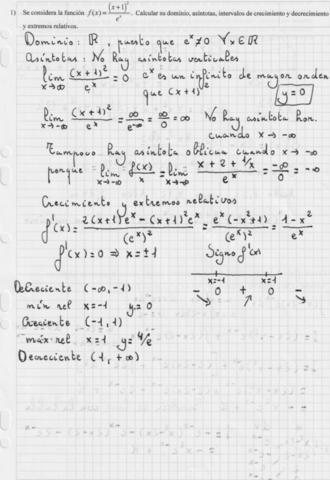 1) Se considera la función f(x) = (x+1)²/eˣ. Calcular su dominio, asíntotas, intervalos de crecimiento y decrecimiento
y extremos relativos.
Dominio: ℝ, puesto que eˣ ≠ 0 ∀x∈ℝ
Asíntotas: No hay asíntotas verticales
lim x→∞ (x+1)²/eˣ = 0 eˣ es un infinito de mayor orden
que (x+1)² y=0
lim x→-∞ (x+1)²/eˣ = ∞/e^-∞ = ∞/0 = ∞ No hay asíntota hor.
cuando x→-∞
Tampoco hay asíntota oblicua cuando x→-∞
porque lim x→-∞ f(x)/x = lim x→-∞ (x+2+1/x)/eˣ = -∞/0 = -∞
Crecimiento y extremos relativos
f'(x) = (2(x+1)eˣ - (x+1)²eˣ)/(eˣ)² = eˣ(-x²+1)/(eˣ)² = (1-x²)/eˣ
f'(x)=0 ⇒ x=±1 Signo f'(x)
x=-1 x=1
- 0 + 0 -
↘ ↗ ↘
Decreciente (-∞,-1)
mín rel x=-1 y=0
Creciente (-1,1)
máx rel x=1 y=4/e
Decreciente (1,+∞)